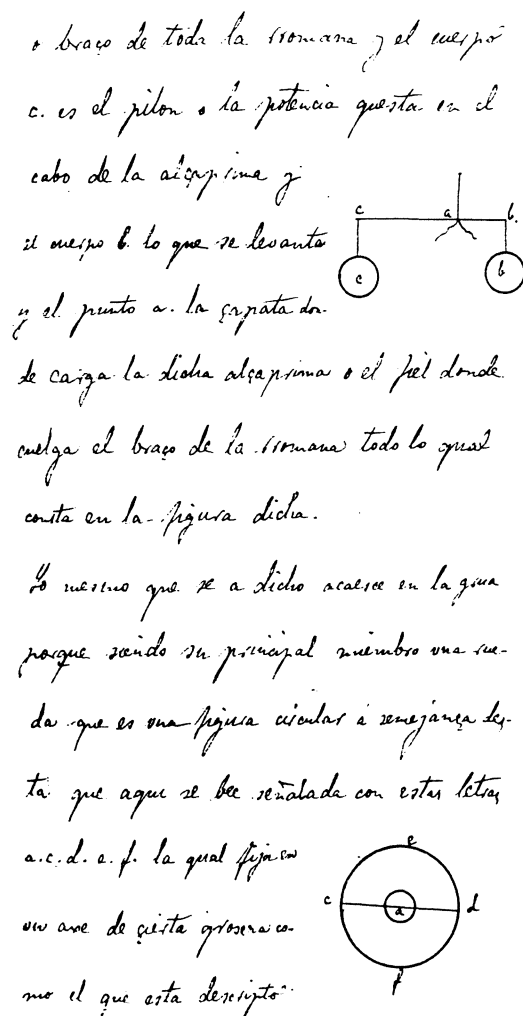 o braço de toda la rromana y el cuerpo
c. es el pilon o la potencia questa en el
cabo de la alçaprima y
el cuerpo b. lo que se levanta
y el punto a. la çapata don-
de carga la dicha alçaprima o el fiel donde
cuelga el braço de la rromana todo lo qual
consta en la figura dicha.
c a b.
c b
Lo mesmo que se a dicho acaesce en la grua
porque siendo su principal miembro una rue-
da que es una figura circular á semejança des-
ta que aqui se bee señalada con estas letras
a.c.d.e.f. la qual fija en
un axe de çierta grosera co-
mo el que esta descripto
e
c a d
f